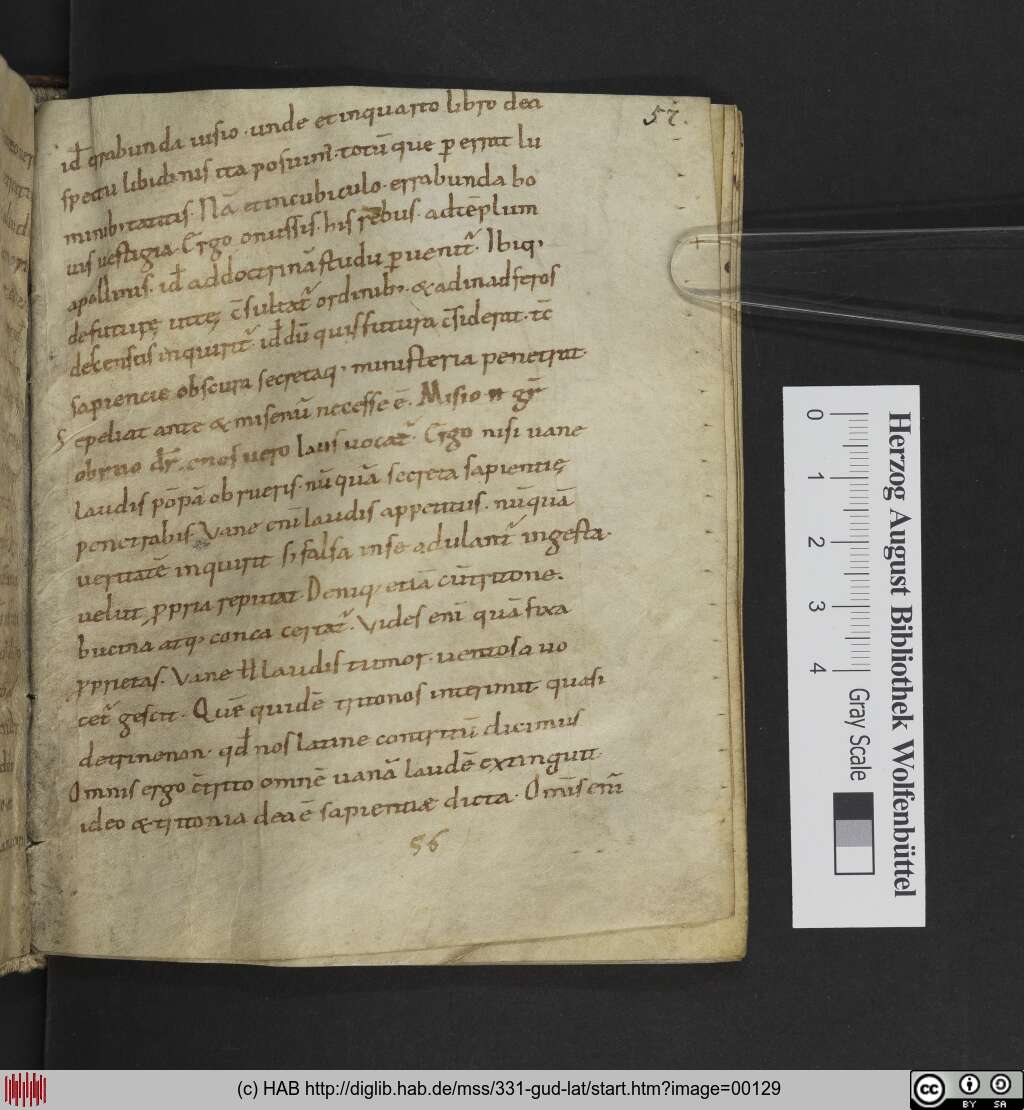 57.
id errabunda uisio · unde et inquarto libro dea
spectu libidinis ita posuim̃ · totū que perrrat lu
minib; tacitis · Nā et incubiculo · errabunda bo
uis uestigia · Ergo omissis · his rebus · adtēplum
apollinis · id addoctrinā studii puenit̃ · Ibiq;
defuturę uitę c̄sultat̃ ordinib; · & adinadferos
descensus inquirit̃ · id dū quis futura c̄siderat · tc̄
sapiencie obscura secretaq; ministeria penetrat·
S epeliat ante & misenū necesse ē · Misio n̄ gr̄
obruo dr̃ · enos uero laus uocat̃ · Ergo nisi uane
laudis pōpā obrueris · nū quā secreta sapientię
penetrabis · Vane eni laudis appetitus · nūquā
ueritatē inquirit s; falsa inse adulant̃ ingesta·
uelut propria reputat · Deniq; etiā cūtritone·
bucina atq; conca certat̃ · Vides eni quā fixa
proprietas · Vane laudis tumor · uentosa uo
cet̃ gescit · Quē quidē tritonos interimit quasi
detrimenon · qd nos latine contritū dicimus
Omnis ergo c̄trito omnē uanā laudē extinguit·
ideo & tritonia dea ē sapientiæ dicta · Omīs eni
56
Herzog August Bibliothek Wolfenbüttel
0 1 2 3 4
Gray Scale
(c) HAB http://diglib.hab.de/mss/331-gud-lat/start.htm?image=00129
cc BY SA